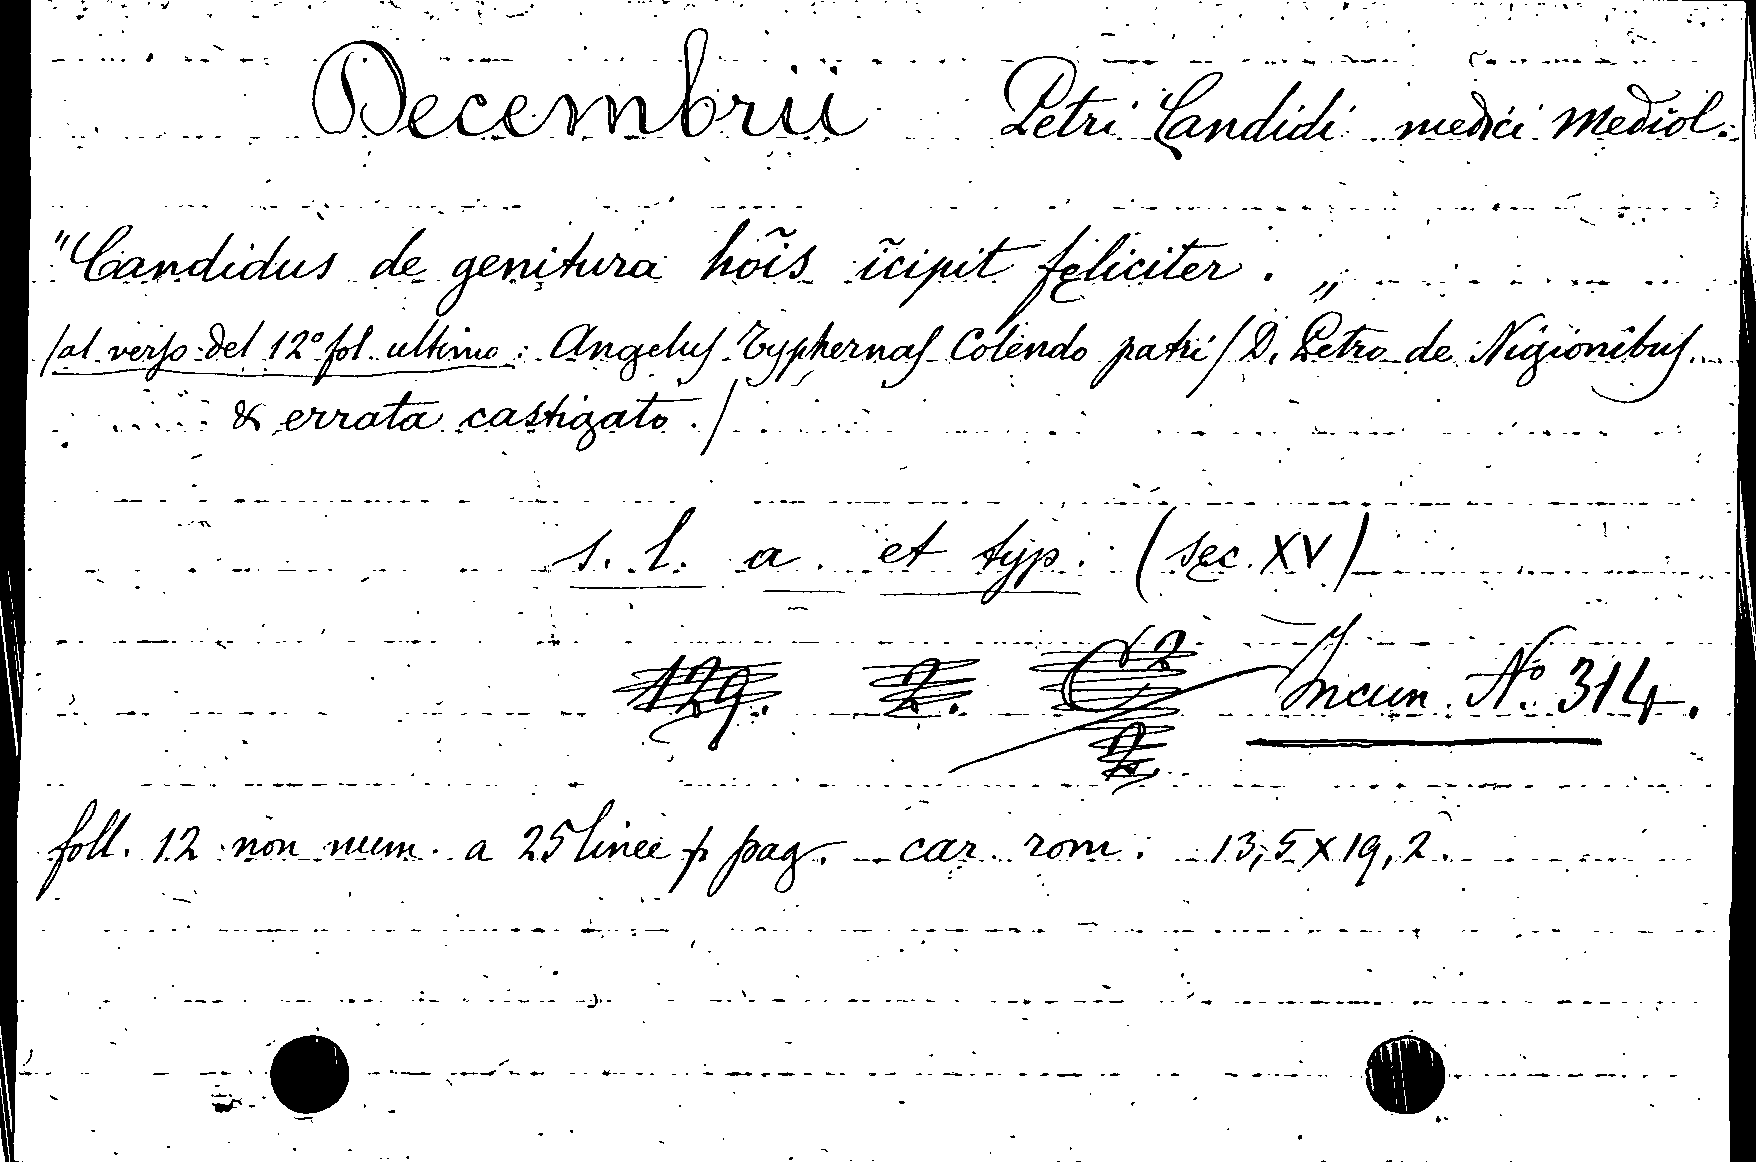 Decembrii Petri Candidi medici Mediol.
"Candidus de genitura hõis ĩcipit feliciter. „
/al verso del 12º fol. ultimo: Angelus Typhernas Colendo patri / D. Petro de Nigionibus
& errata castigato./
s. l. a. et typ. (sec. XV)
129. 2. Incun. Nº 314.
foll. 12 non num. a 25 linee p pag. car. rom. 13,5 x 19,2.